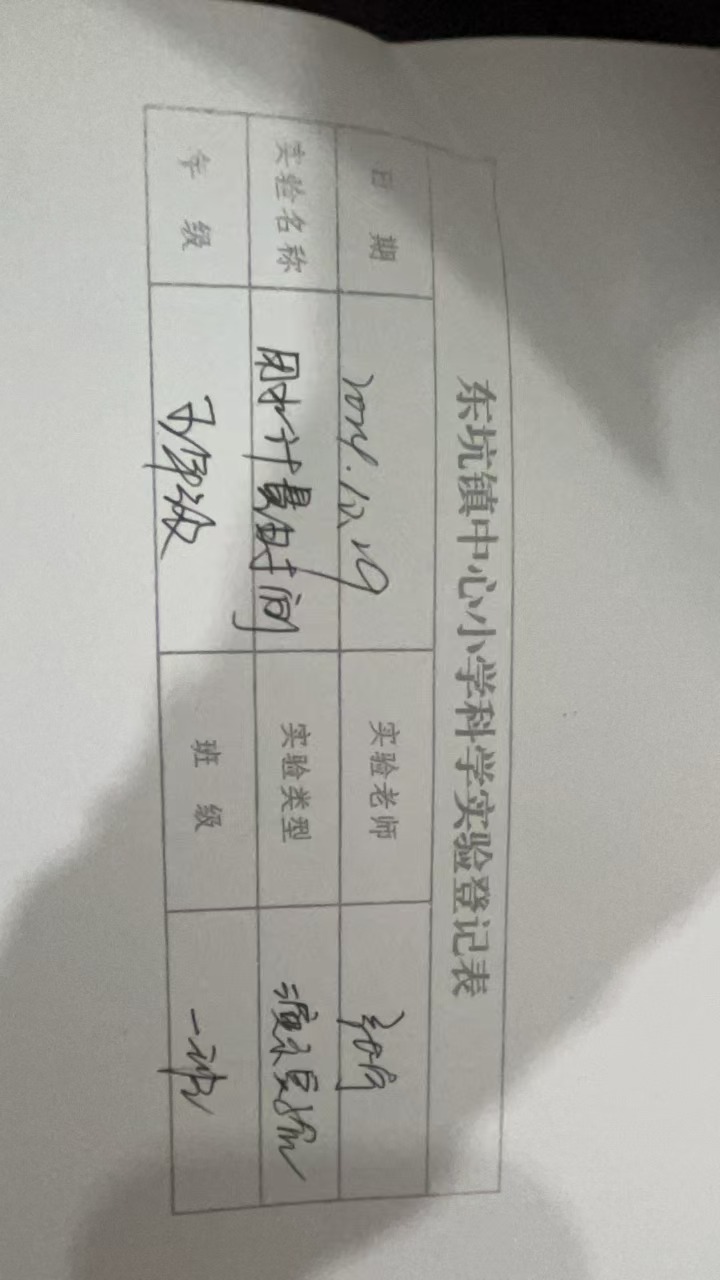 东坑镇中心小学科学实验登记表
日 期 2024.12.19 实验老师
实验名称 用水计量时间 实验类型 演示实验
年 级 五年级 班 级 一班